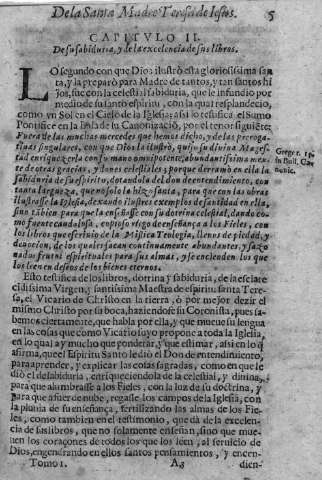 De la Santa Madre Teresa de Iesus. 5
CAPITVLO II.
De su sabiduria, y de la excelencia de sus libros.
LO segundo con que Dios ilustrò esta gloriosissima san
ta, y la preparò para Madre de tantos, y tan santos hi
jos, fue con la celestial sabiduria, que le infundio por
medio de su santo espiritu, con la qual resplandecio,
como vn Sol en el Cielo de la Iglesia; assi lo testifica el Sumo
Pontifice en la Bula de su Canonizaciō, por el tenor siguiēte;
Fuera de las muchas mercedes que hemos dicho, y de las preroga-
tiuas singulares, con que Dios la ilustrò, quiso su diuina Mages-
tad enriquezerla con su mano omnipotente, abundantissima men-
te de otras gracias, y dones celestiales; porque derramò en ella la
sabiduria de su espiritu, dotandola del don de entendimiento, con
tanta largueza, que no solo la hizo santa, para que con las obras
ilustrasse la Iglesia, dexando ilustres exemplos de santidad en ella,
sino tābien para que la enseñasse con su dotrina celestial, dando co-
mo fuente caudalosa, copioso riego de enseñança a los Fieles, con
los libros que escriuio de la Mistica Teologia, llenos de piedad, y
deuocion, de los quales sacan continuamente abundantes, y sazo-
nados frutos espirituales para sus almas, y se encienden los que
los leen en deseos de los bienes eternos.
Gregor. 15.
in Bull. Ca-
nonic.
Esto testifica de los libros, dotrina y sabiduria, de esta escla-
cidissima Virgen, y santissima Maestra de espiritu santa Tere-
sa, el Vicario de Christo en la tierra, ò por mejor dezir el
mismo Christo por su boca, haziendose su Coronista, pues sa-
bemos ciertamente, que habla por ella, y que mueue su lengua
en las cosas que como Vicario suyo propone a toda la Iglesia,
en lo qual a y mucho que ponderar, y que estimar, assi en lo q̄
afirma, que el Espiritu Santo le diò el Don de entendimiento,
para aprender, y explicar las cosas sagradas, como en que le
diò el de sabiduria, enriqueciendola de celestial, y diuina,
para que alumbrasse a los Fieles, con la luz de su doctrina, y
para que a fuer de nube, regasse los campos de la Iglesia, con
la pluuia de su enseñança, fertilizando las almas de los Fie-
les, como tambien en el testimonio, que dà de la excelen-
cia de sus libros, que no solamente enseñan, sino que mue-
uen los coraçones de todos los que los leen, al seruicio de
Dios, engendrando en ellos santos pensamientos, y encen-
Tomo 1. A3 dien-